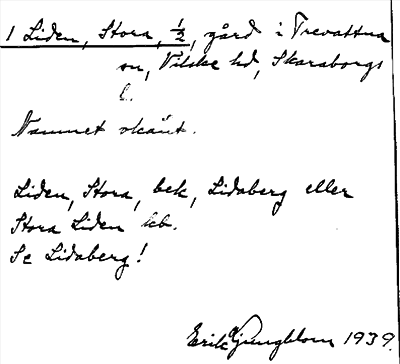 1 Liden, Stora, ½, gård i Trevattna
sn, Vilske hd, Skaraborgs
l.
Namnet okänt.
Liden, Stora, bek, Lidaberg eller
Stora Liden kb.
Se Lidaberg!
Erik Ljungblom 1939.